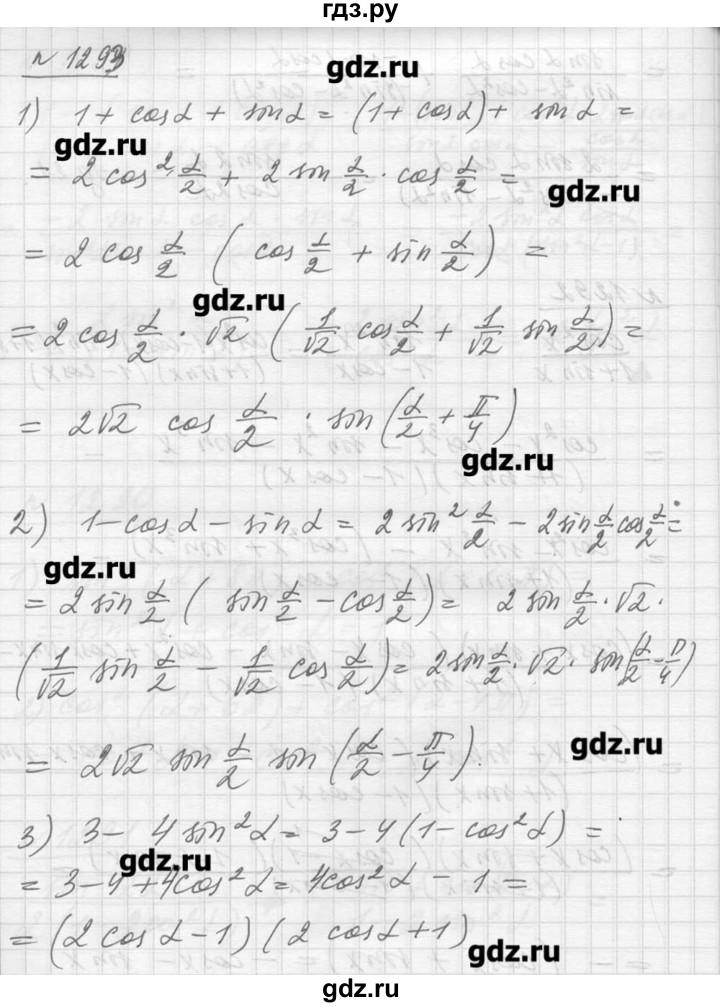 гдз.ру
№ 1293
gdz.ru
1) 1 + cosα + sinα = (1 + cosα) + sinα =
gdz.ru
= 2 cos² α/2 + 2 sin α/2 · cos α/2 =
gdz.ru
= 2 cos α/2 (cos α/2 + sin α/2) =
gdz.ru
= 2 cos α/2 · √2 (1/√2 cos α/2 + 1/√2 sin α/2) =
= 2√2 cos α/2 · sin(α/2 + π/4)
gdz.ru
2) 1 - cosα - sinα = 2 sin² α/2 - 2 sin α/2 cos α/2 =
gdz.ru
= 2 sin α/2 (sin α/2 - cos α/2) = 2 sin α/2 · √2 ·
(1/√2 sin α/2 - 1/√2 cos α/2) = 2 sin α/2 · √2 · sin(α/2 - π/4)
gdz.ru
= 2√2 sin α/2 sin (α/2 - π/4).
3) 3 - 4 sin²α = 3 - 4(1 - cos²α) =
gdz.ru
= 3 - 4 + 4cos²α = 4cos²α - 1 =
= (2 cosα - 1)(2 cosα + 1)
gdz.ru
гдз.ру